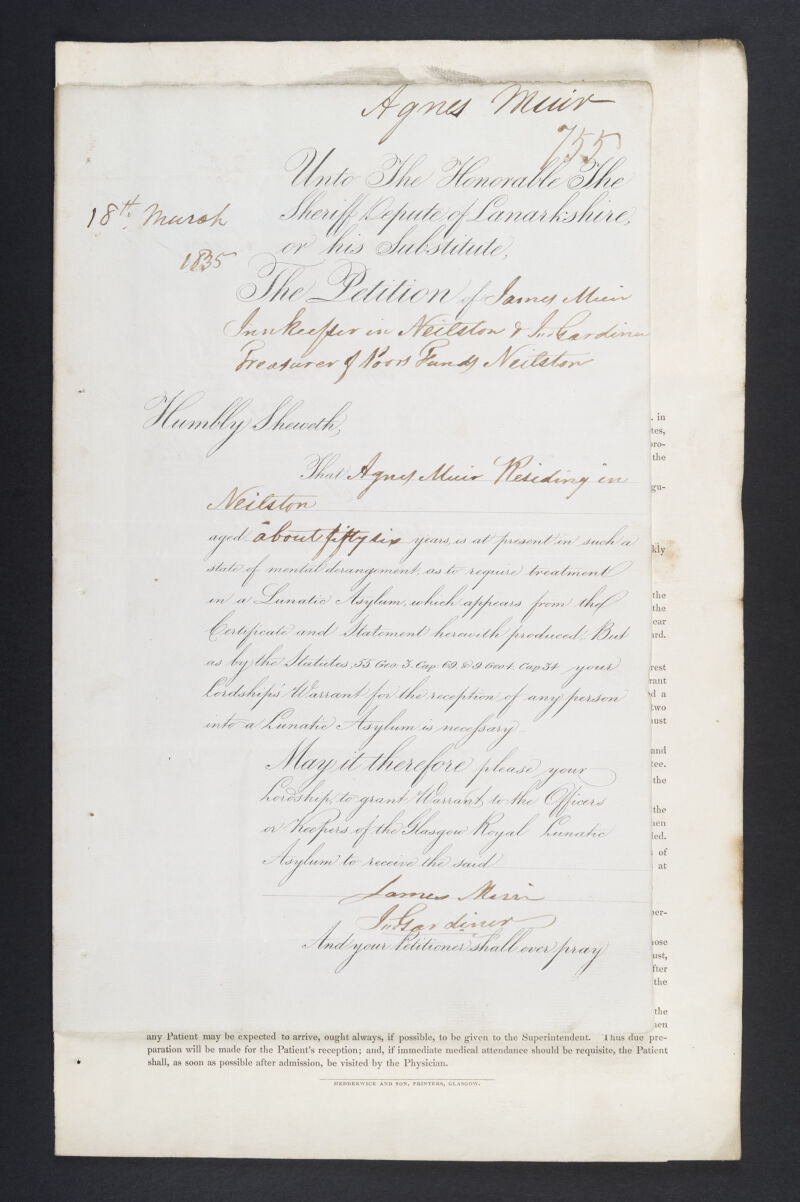 Agnes Muir
755
18th March
1835
Unto The Honorable The
Sheriff Depute of Lanarkshire,
or his Substitute,
The Petition of James Muir
Innkeeper in Neilston & Jn Gardiner
Treasurer of Poors Funds Neilston
Humbly Sheweth,
That Agnes Muir Residing in
Neilston
aged about fifty six years, is at present in such a
state of mental derangement, as to require treatment
in a Lunatic Asylum, which appears from the
Certificate and Statement herewith produced. But
as by the Statutes, 55 Geo. 3. Cap. 69. & 9 Geo 4. Cap 34 your
Lordship's Warrant for the reception of any person
into a Lunatic Asylum is necessary
May it therefore please your
Lordship, to grant Warrant, to the Officers
or Keepers of the Glasgow Royal Lunatic
Asylum to receive the said
James Muir
Jn Gardiner
And your Petitioner shall ever pray
. in
tes,
pro-
the
gu-
kly
the
the
ear
ard.
rest
rant
d a
two
ust
and
tee.
the
the
hen
ded.
of
at
per-
hose
ust,
fter
the
the
hen
any Patient may be expected to arrive, ought always, if possible, to be given to the Superintendent. Thus due pre-
paration will be made for the Patient's reception; and, if immediate medical attendance should be requisite, the Patient
shall, as soon as possible after admission, be visited by the Physician.
HEDDERWICK AND SON, PRINTERS, GLASGOW.